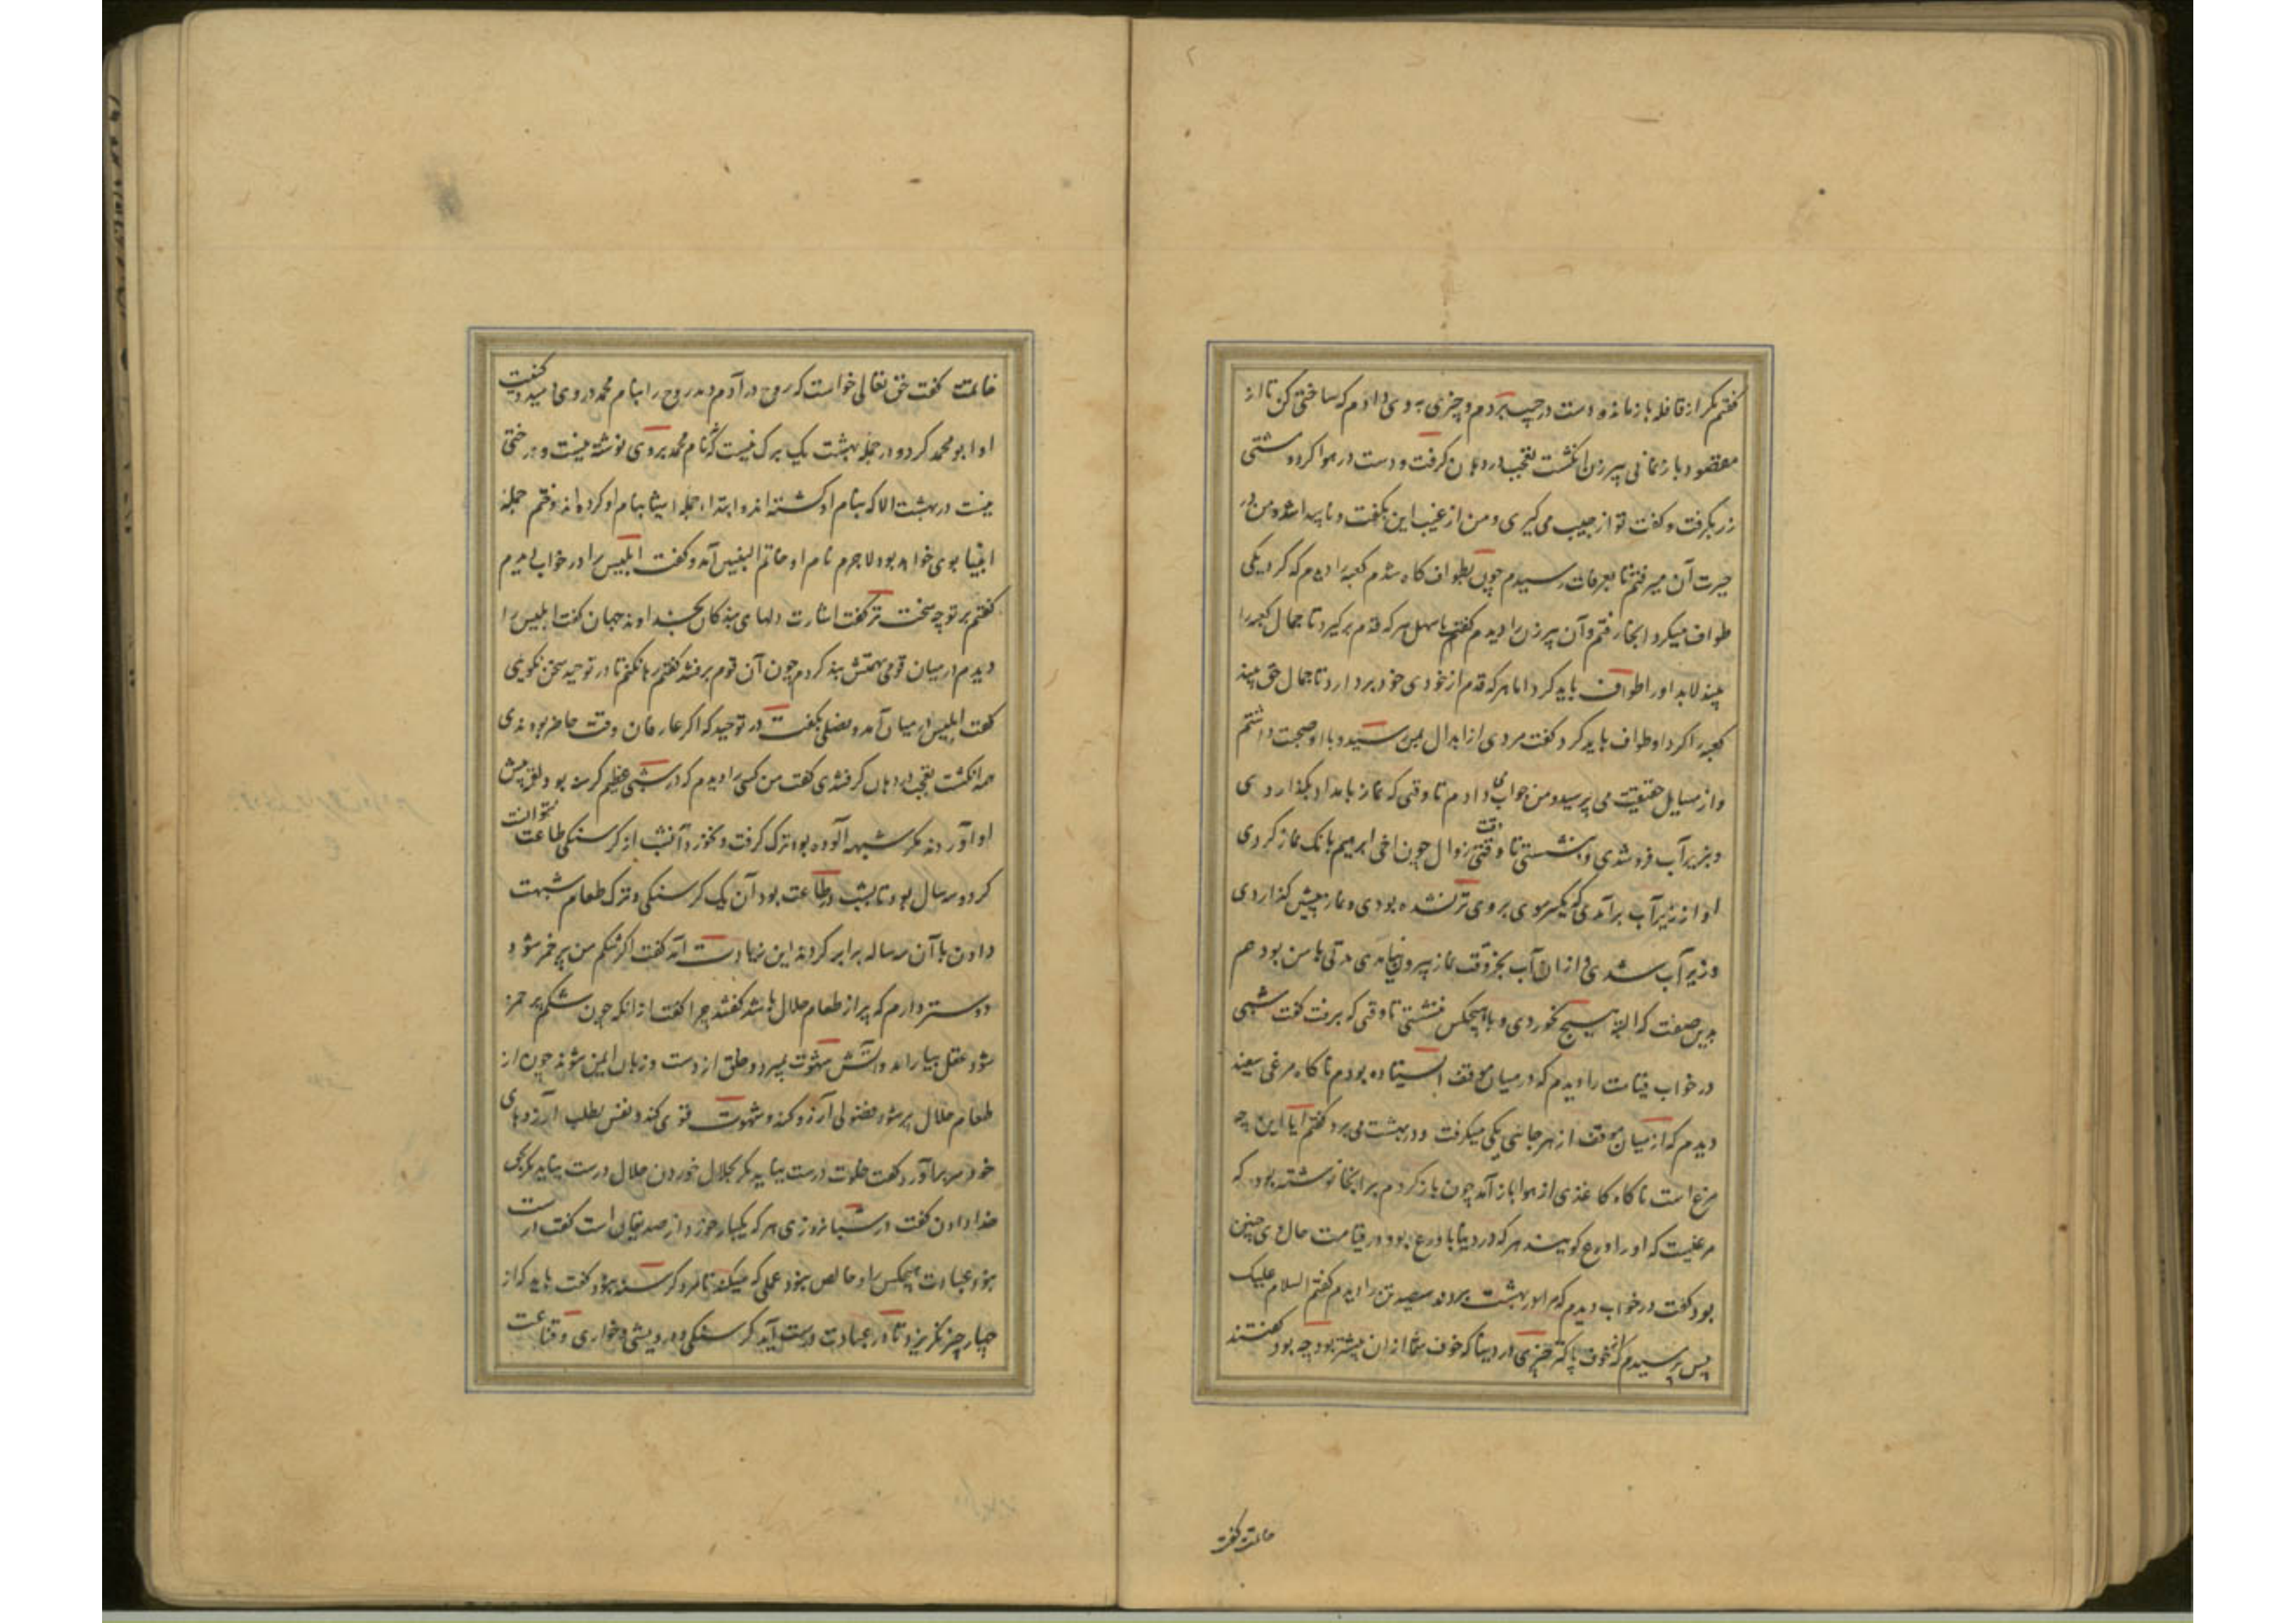 گفتم مگر از قافله باز مانده دست در جیب بردم و چیزی به وی دادم که ساختگی کن تا از
مقصود باز نمانی پیرزن انگشت تعجب در دهان گرفت و دست در هوا کرد و مشتی
زر بگرفت و گفت تو از جیب می گیری و من از غیب این بگفت و ناپیدا شد و من در
حیرت آن میرفتم تا بعرفات رسیدم چون بطواف گاه شدم کعبه را دیدم که گرد یکی
طواف میکرد آنجا رفتم و آن پیرزن را دیدم گفتم یا سهل هر که قدم برگیرد تا جمال کعبه را
بیند لابد او را طواف باید کرد اما هر که قدم از خودی خود بردارد تا جمال حق بیند
کعبه را گرد او طواف باید کرد گفت مردی از ابدال بمن رسید و با او صحبت داشتم
و از مسایل حقیقت می پرسید و من جواب می دادم تا وقتی که نماز بامداد بگذاردی
و بزیر آب فرو شدی و بنشستی تا وقت زوال چون اخی ابرهیم بانک نماز کردی
او از زیر آب برآمدی که یکسر موی بر وی تر نشده بودی و نماز پیشین گذاردی
و زیر آب شدی و از آن آب بجز وقت نماز بیرون نیامدی مدتی با من بود هم
بدین صفت که البته هیچ نخوردی و با هیچکس ننشستی تا وقتی که برفت گفت شبی
در خواب قیامت را دیدم که در میان موقف ایستاده بودم ناگاه مرغی سفید
دیدم که از میان موقف از هر جانبی یکی میگرفت و در بهشت می برد گفتم آیا این چه
مرغ است ناگاه کاغذی از هوا باز آمد چون باز کردم بر آنجا نوشته بود که
مرغیست که او را ورع گویند هر که در دنیا با ورع بود در قیامت حال وی چنین
بود گفت در خواب دیدم که مرا در بهشت بردند سیصد تن را دیدم گفتم السلام علیک
پس پرسیدم که خوفناکتر چیزی در دنیا که خوف شما از آن بیشتر بود چه بود گفتند
خاتمت گفت
خاتمت گفت حق تعالی خواست که روح در آدم دمد روح را بنام محمد در وی دمید و کنیت
او ابو محمد کرد و در جمله بهشت یک برک نیست که نام محمد بر وی نوشته نیست و درختی
نیست در بهشت الا که بنام او کشته اند و ابتداء جمله اشیا بنام او کرده اند و ختم جمله
انبیا بوی خواهد بود لاجرم نام او خاتم النبیین آمد و گفت ابلیس را در خواب دیدم
گفتم بر تو چه سخت تر گفت اشارت دلهای بندگان بخداوند جهان گفت ابلیس را
دیدم در میان قومی بهمتش بند کردم چون آن قوم برفتند گفتم رها نکنم تا در توحید سخن نگویی
گفت ابلیس در میان آمد و فصلی بگفت در توحید که اگر عارفان وقت حاضر بودندی
همه انگشت تعجب در دهان گرفتندی گفت من کسی را دیدم که در شبی عظیم گرسنه بود لقمه پیش
او آوردند مگر شبهه آلوده بود ترک گرفت و نخورد و آنشب از گرسنگی طاعت نتوانست
کرد و سه سال بود تا بشب در طاعت بود آن یک گرسنگی و ترک طعام شبهت
دادن با آن سه ساله برابر کردند این زیادت آمد گفت اگر شکم من پر خمر شود
دوستر دارم که پر از طعام حلال باشد گفتند چرا گفت از آنکه چون شکم پر خمر
شود عقل بیارامد و آتش شهوت بمیرد و خلق از دست و زبان ایمن شوند چون از
طعام حلال پر شود فضولی آرزو کند و شهوت قوی کند و نفس بطلب آرزوهای
خود سر برآورد گفت خلوت درست نیاید مگر بحلال خوردن حلال درست نیاید مگر بحق
خدا دادن گفت در شبانروزی هر که یکبار خورد از صدیقان است گفت درست
نبود عبادت هیچکس را و خالص نبود عملی که میکند تا مرد گرسنه نبود گفت باید که از
چهار چیز نگریزد تا در عبادت درست آید گرسنگی و درویشی و خواری و قناعت